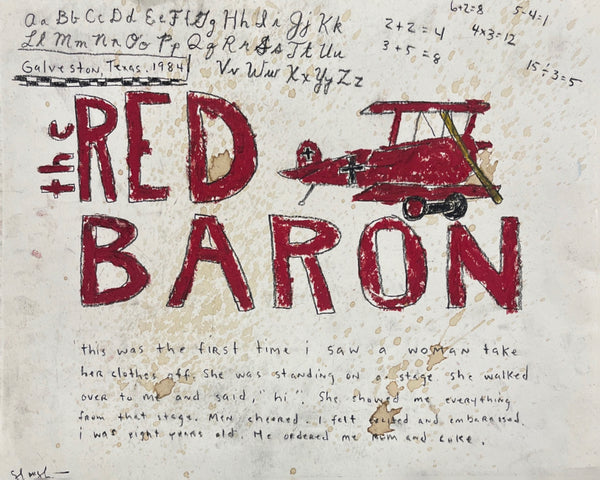 Aa Bb Cc Dd Ee Ff Gg Hh Ii Jj Kk
Ll Mm Nn Oo Pp Qq Rr Ss Tt Uu
Vv Ww Xx Yy Zz
Galveston, Texas, 1984
2+2=4
3+5=8
6+2=8
4x3=12
5-4=1
15÷3=5
the RED
BARON
this was the first time i saw a woman take
her clothes off. She was standing on a stage. she walked
over to me and said, "hi". She showed me everything
from that stage. Men cheered. I felt excited and embarrassed.
i was eight years old. He ordered me rum and coke.